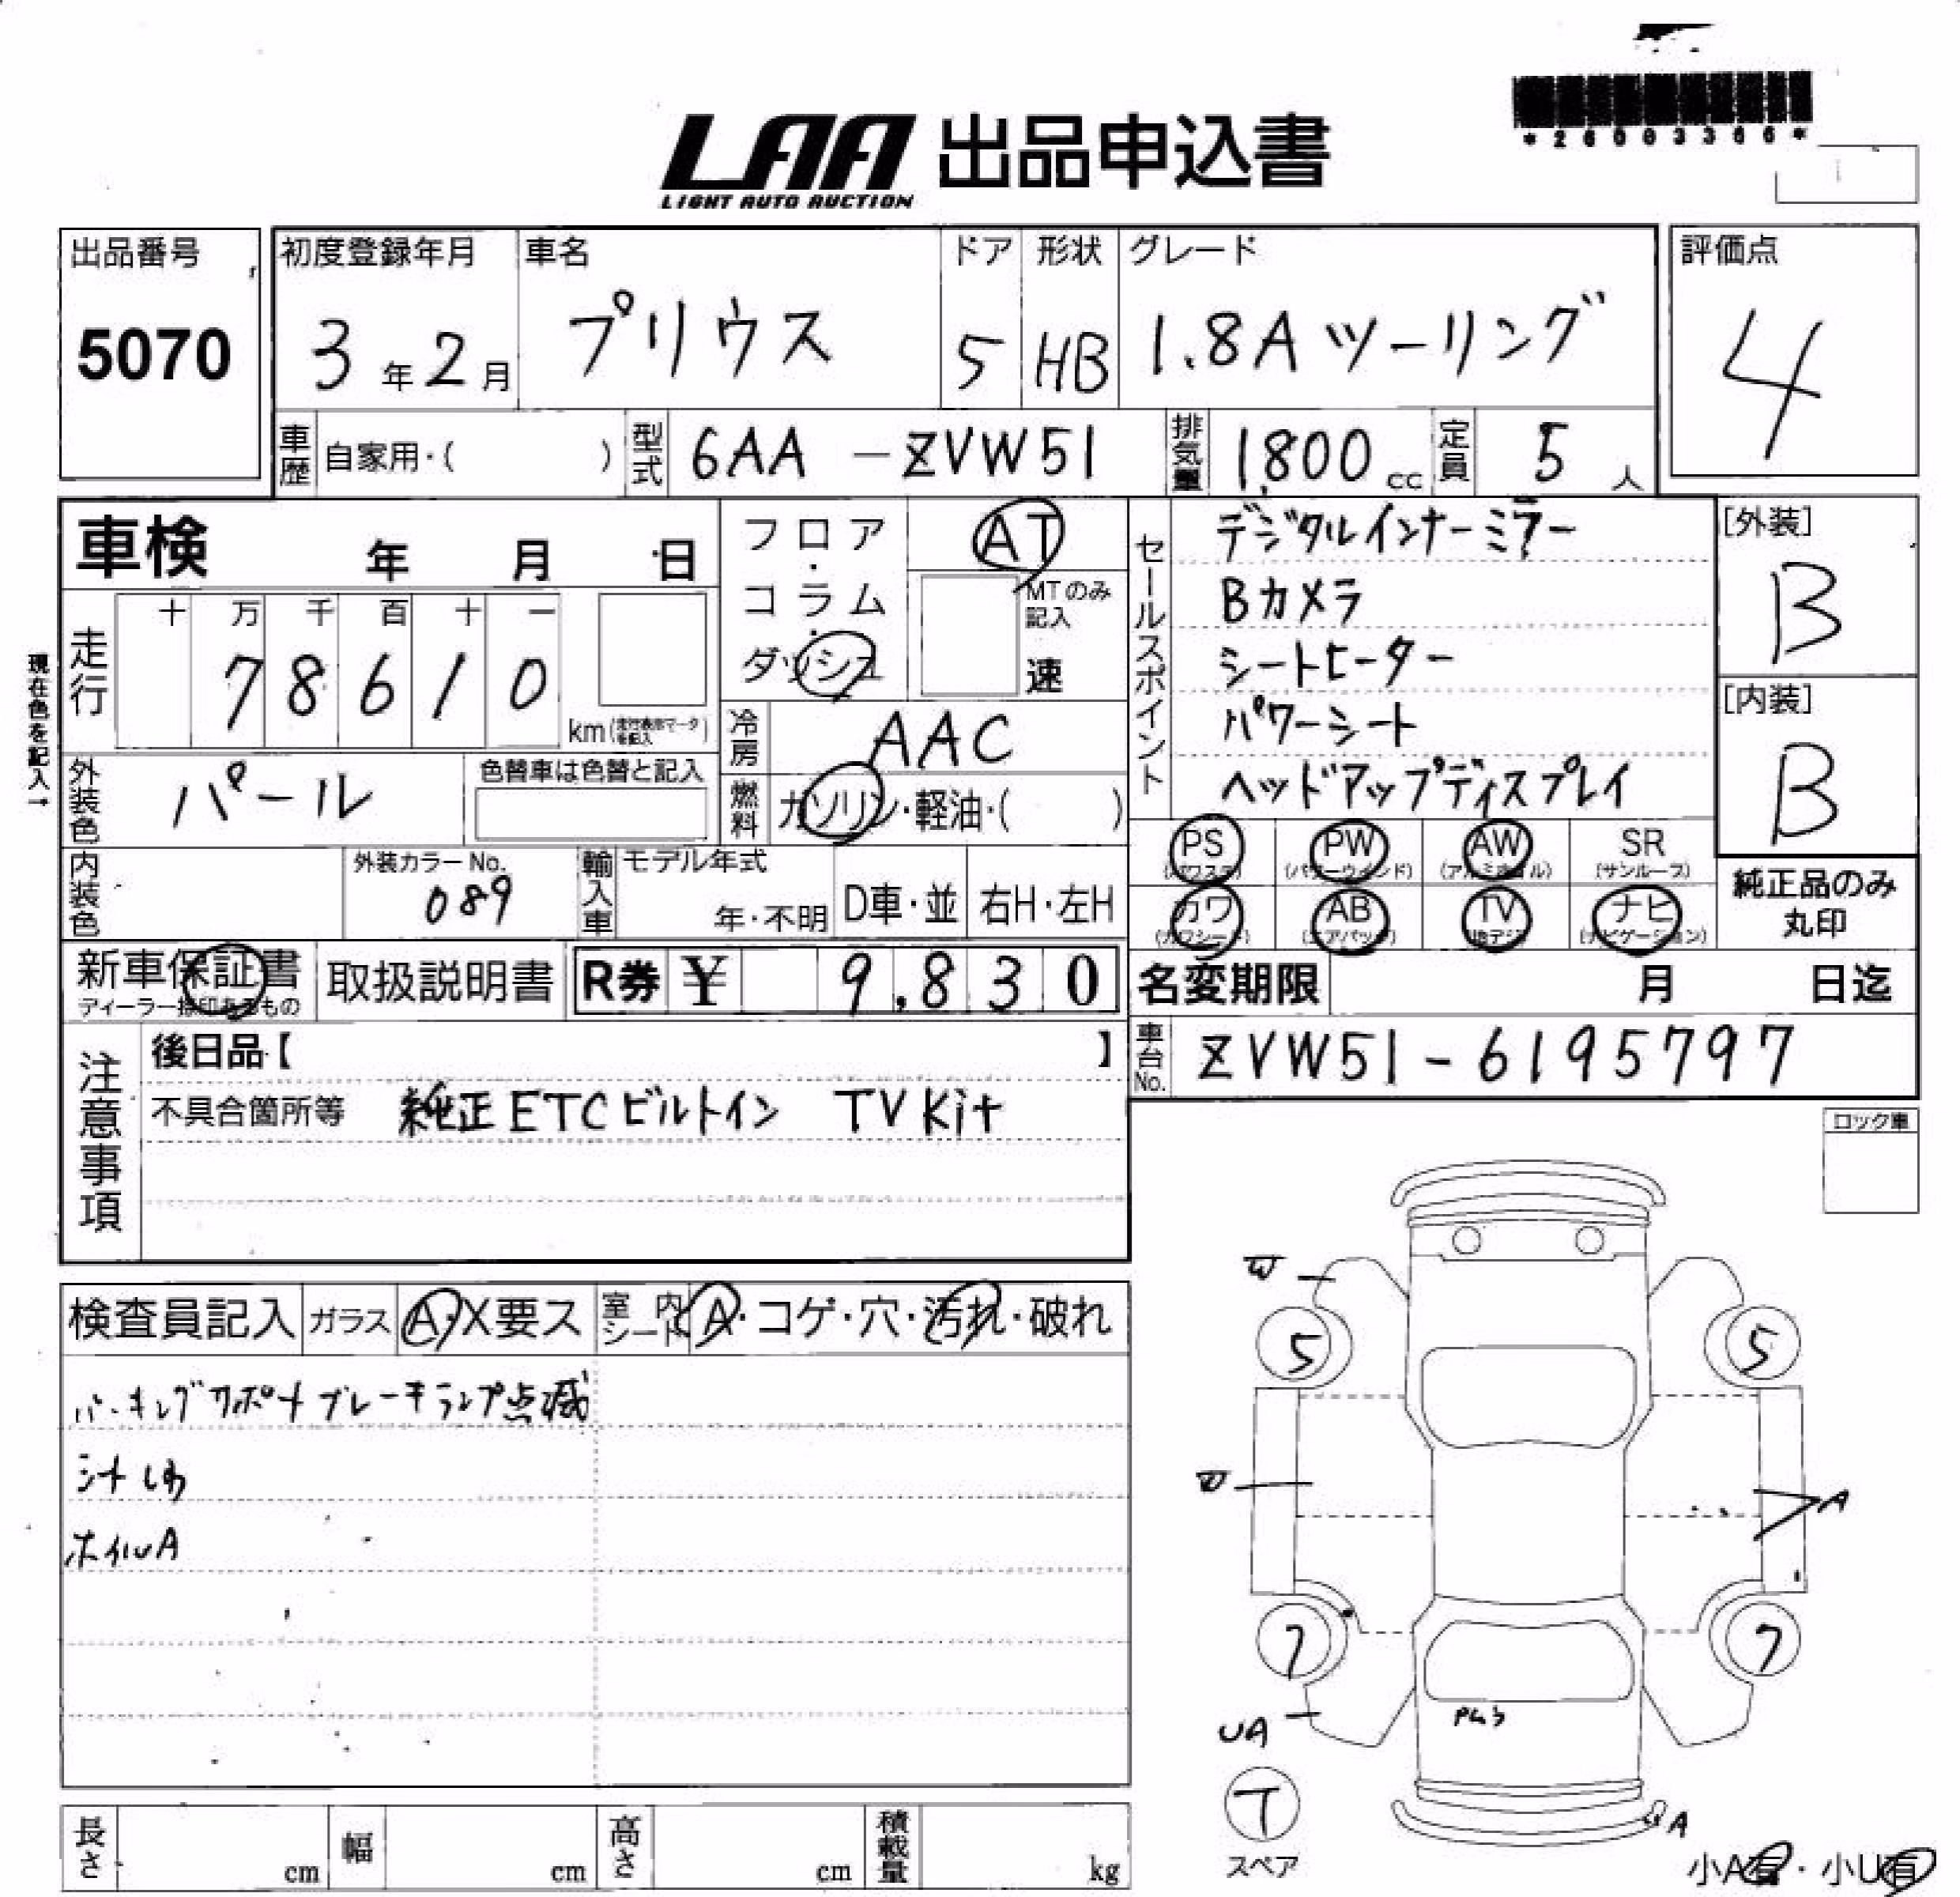 *26003366*
LAA 出品申込書
LIGHT AUTO AUCTION
出品番号
5070
初度登録年月
3年2月
車名
プリウス
ドア
5
形状
HB
グレード
1.8Aツーリング
評価点
4
車歴 自家用・( )
型式 6AA-ZVW51
排気量 1,800 cc
定員 5 人
車検 年 月 日
フロア・コラム・ダッシュ
AT
MTのみ記入
速
セールスポイント
デジタルインナーミラー
Bカメラ
シートヒーター
パワーシート
ヘッドアップディスプレイ
[外装]
B
[内装]
B
現在色を記入→
走行
十 万 千 百 十 一
7 8 6 1 0
km
冷房 AAC
外装色 パール
色替車は色替と記入
燃料 ガソリン・軽油・( )
PS PW AW SR
(パワステ) (パワーウインド) (アルミホイル) (サンルーフ)
カワ AB TV ナビ
(カワシート) (エアバッグ) (地デジ) (ナビゲーション)
純正品のみ
丸印
内装色
外装カラーNo.
089
輸入車
モデル年式
年・不明
D車・並
右H・左H
新車保証書
取扱説明書
R券 ¥ 9,830
名変期限 月 日迄
車台No. ZVW51-6195797
注意事項
後日品【 】
不具合箇所等 純正ETCビルトイン TVKit
ロック車
検査員記入
ガラス A・X要ス
室内シート A・コゲ・穴・汚れ・破れ
パーキングサポートブレーキランプ点滅
シートしわ
ホイルA
W
5
5
A
7
7
UA
T
スペア
A
小A有・小U有
長さ cm
幅 cm
高さ cm
積載量 kg